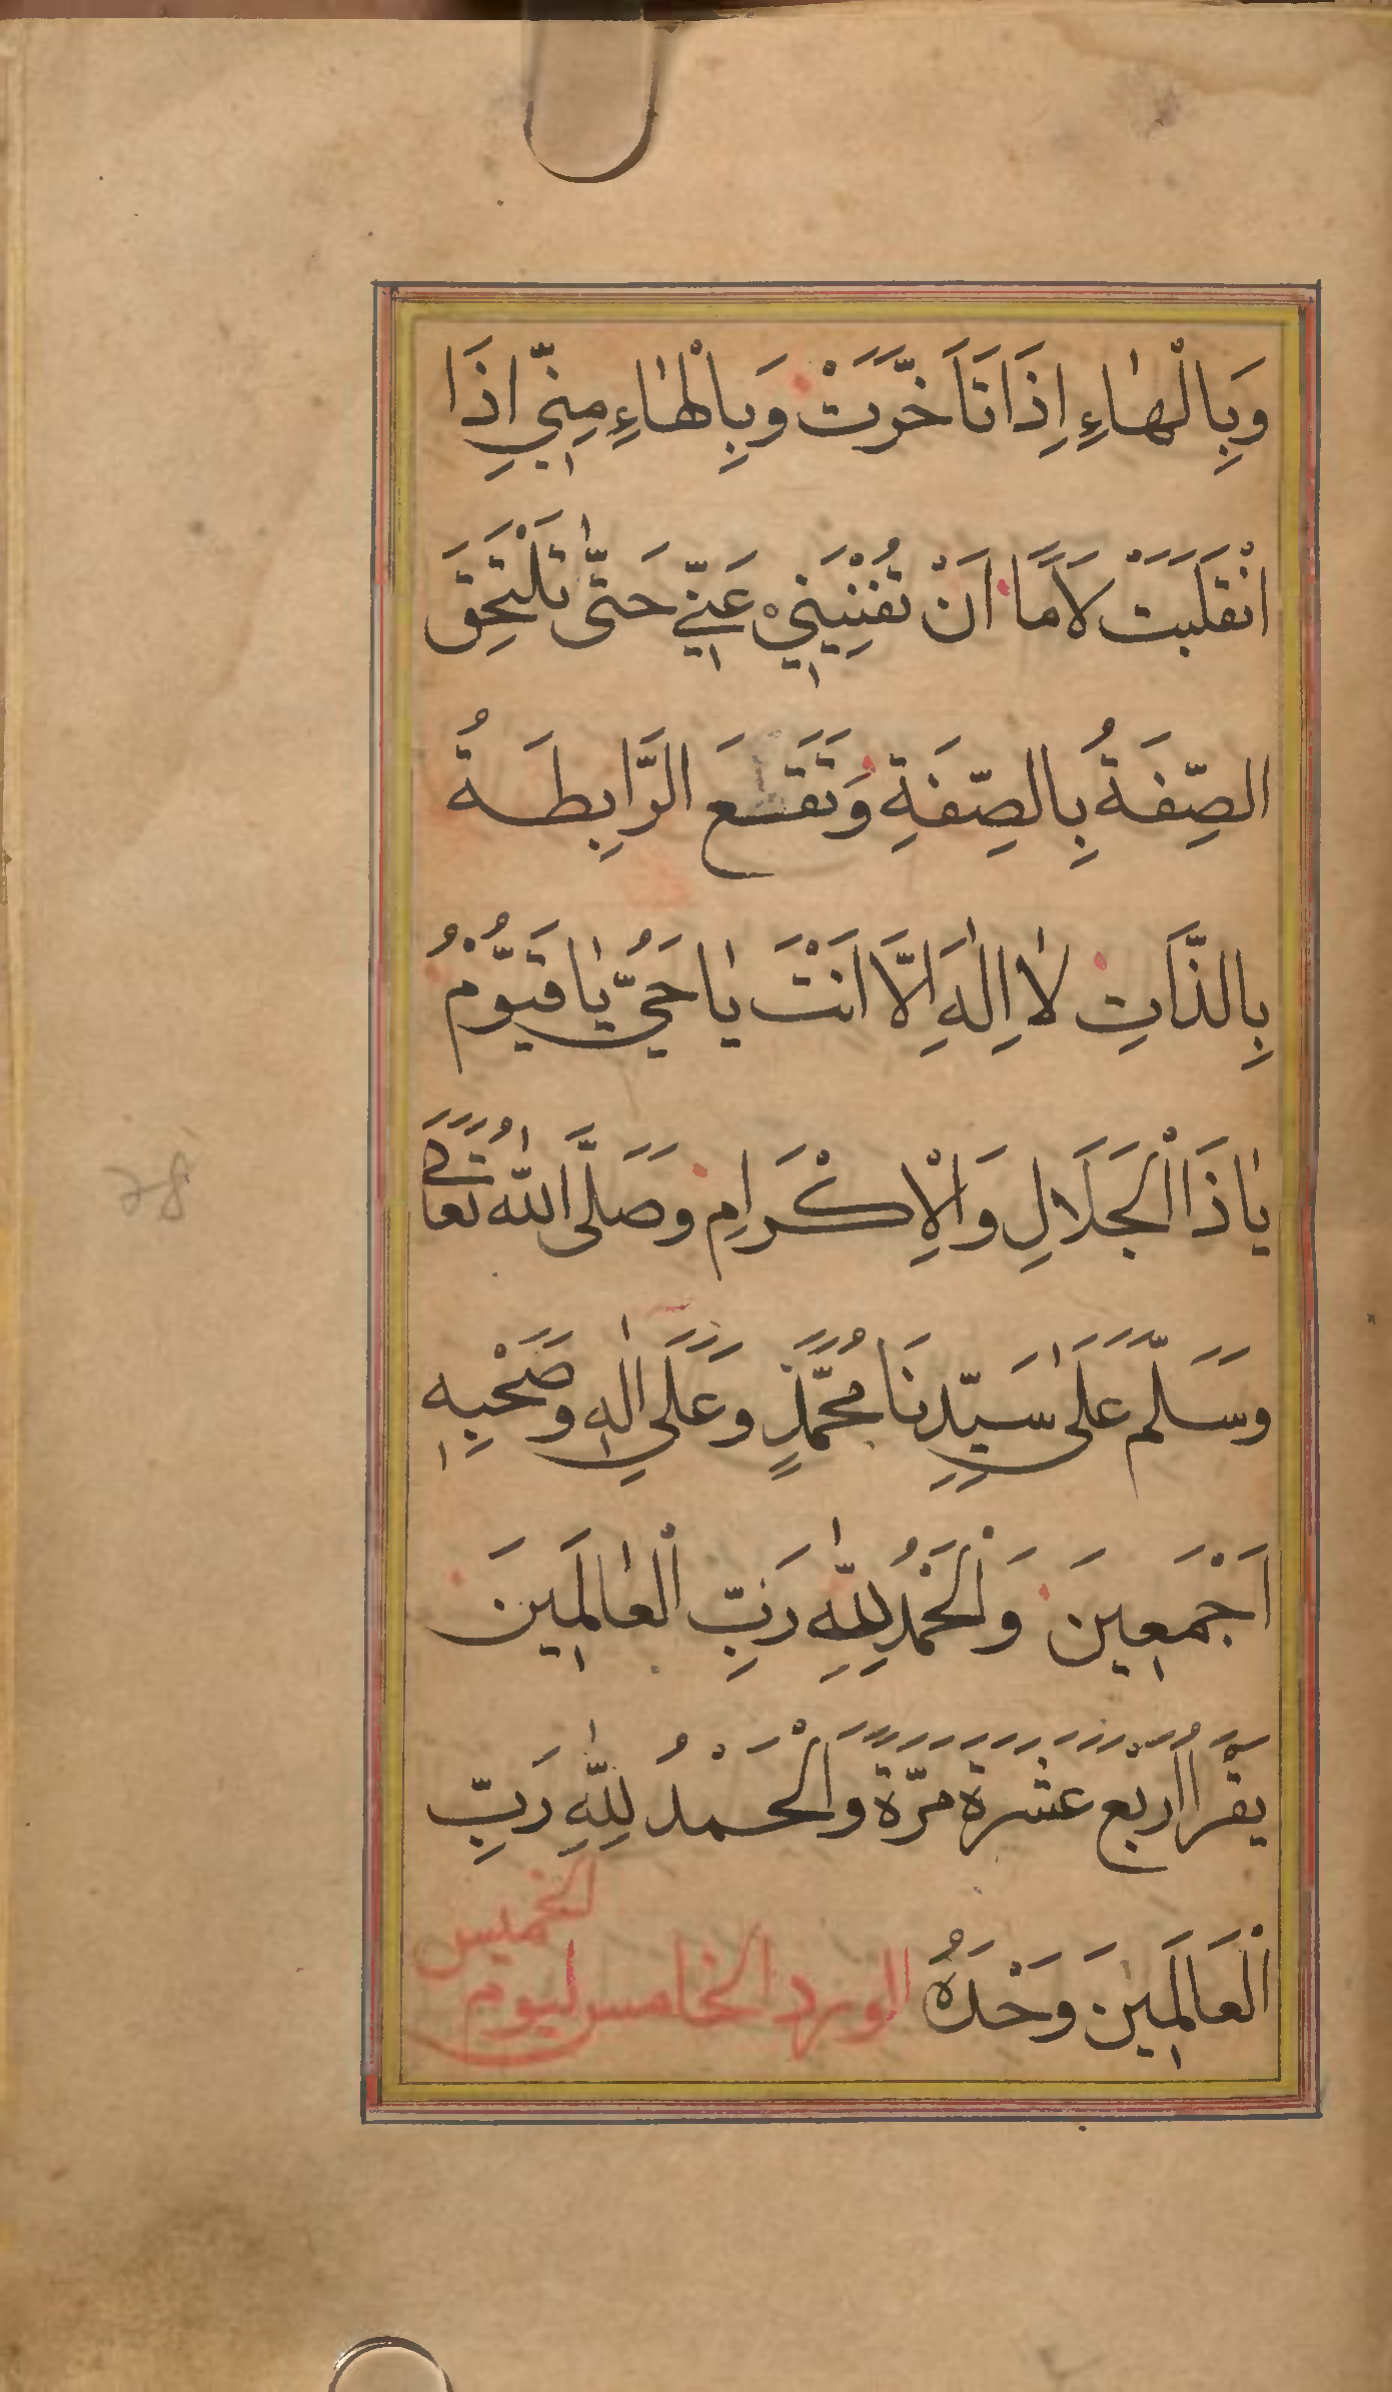 وَبِالْهٰاءِ اِذَا تَاَخَّرَتْ وَبِالْهٰاءِ مِنّٖي اِذَا
انْقَلَبَتْ لَامًا اَنْ تُفْنِيَنٖيْ عَنّٖي حَتّٰى تَلْتَحِقَ
الصِّفَةُ بِالصِّفَةِ وَتَقَعَ الرَّابِطَةُ
بِالذَّاتِ لٰا اِلٰهَ اِلَّا اَنْتَ يٰا حَيُّ يٰا قَيُّوْمُ
يٰا ذَا الْجَلَالِ وَالْاِكْرَامِ وَصَلَّى اللّٰهُ تَعَالٰى
وَسَلَّمَ عَلٰى سَيِّدِنَا مُحَمَّدٍ وَعَلَى اٰلِهٖ وَصَحْبِهٖ
اَجْمَعٖينَ وَالْحَمْدُ لِلّٰهِ رَبِّ الْعٰالَمٖينَ
يَقْرَاُ اَرْبَعَ عَشَرَةَ مَرَّةً وَالْحَمْدُ لِلّٰهِ رَبِّ
الْعَالَمٖينَ وَحْدَهُ الورد الخامس ليوم
الخميس
٢٨